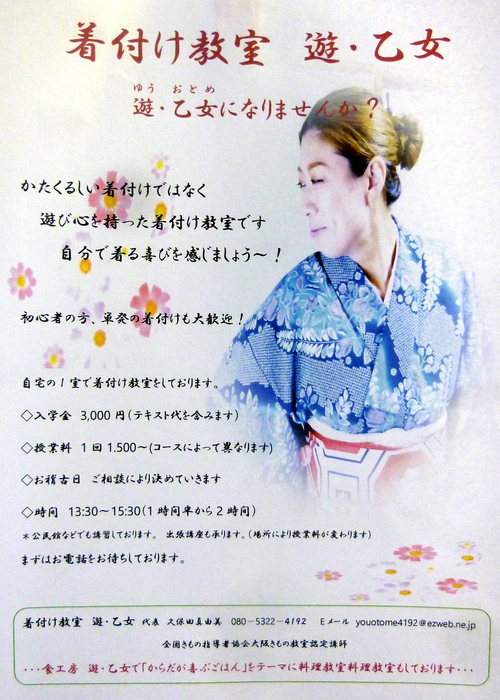 着付け教室 遊・乙女
ゆう おとめ
遊・乙女になりませんか?
かたくるしい着付けではなく
遊び心を持った着付け教室です
自分で着る喜びを感じましょう〜!
初心者の方、単発の着付けも大歓迎!
自宅の1室で着付け教室をしております。
◇入学金 3,000円(テキスト代を含みます)
◇授業料 1回1.500〜(コースによって異なります)
◇お稽古日 ご相談により決めていきます
◇時間 13:30〜15:30(1時間半から2時間)
*公民館などでも講習しております。 出張講座も承ります。(場所により授業料が変わります)
まずはお電話をお待ちしております。
着付け教室 遊・乙女 代表 久保田真由美 080-5322-4192 Eメール youotome4192@ezweb.ne.jp
全国きもの指導者協会大阪きもの教室認定講師
・・・食工房 遊・乙女で「からだが喜ぶごはん」をテーマに料理教室料理教室もしております・・・